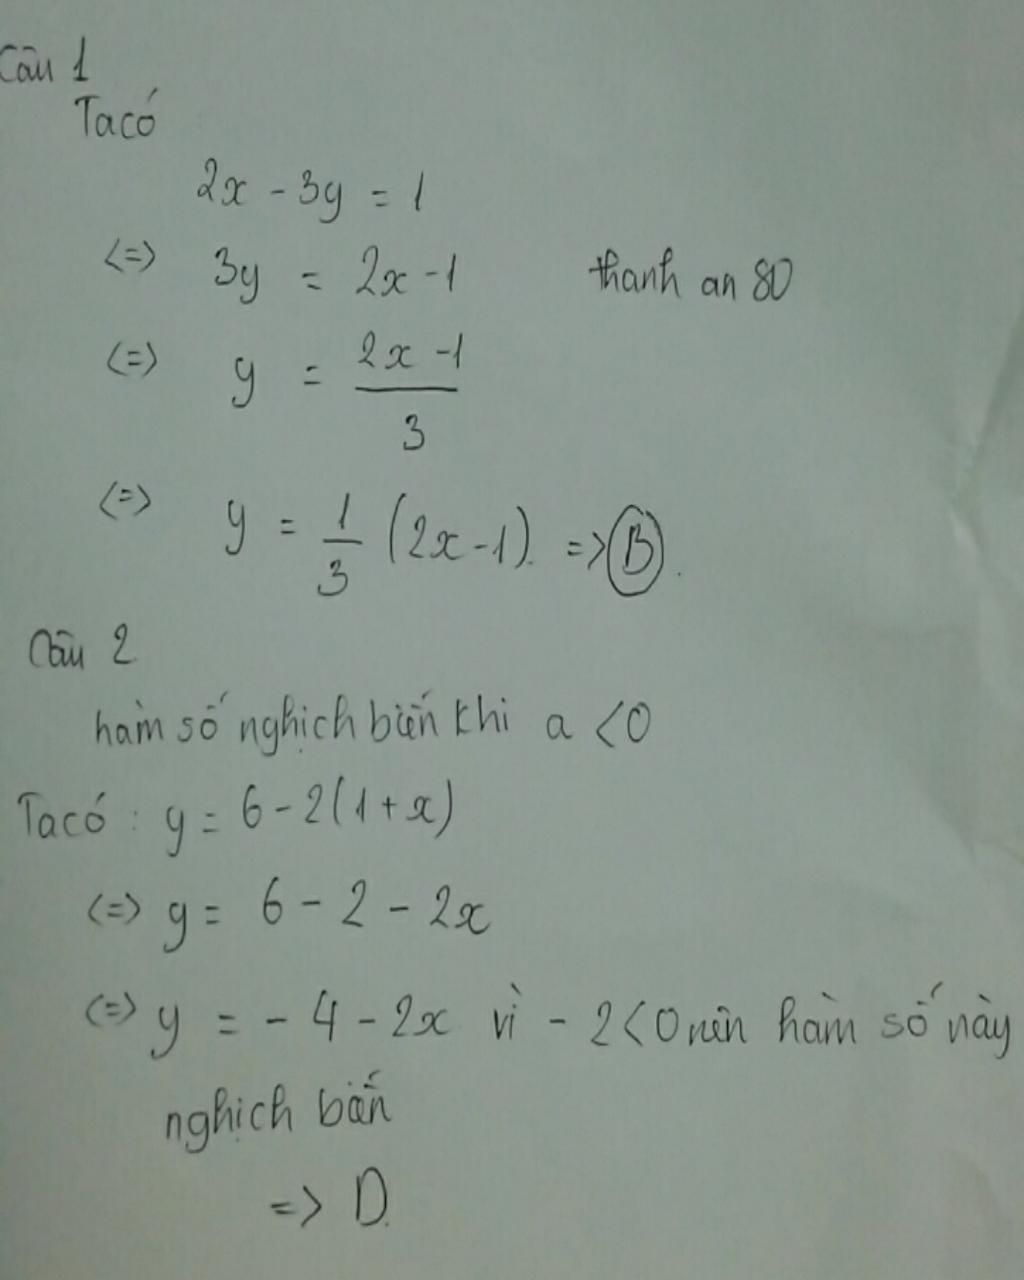 Câu 1
Ta có
2x - 3y = 1
<=> 3y = 2x - 1 thanh an 80
<=> y = \frac{2x - 1}{3}
<=> y = \frac{1}{3} (2x - 1). => B.
Câu 2
hàm số nghịch biến khi a < 0
Ta có : y = 6 - 2(1 + x)
<=> y = 6 - 2 - 2x
<=> y = - 4 - 2x vì - 2 < 0 nên hàm số này
nghịch biến
=> D.